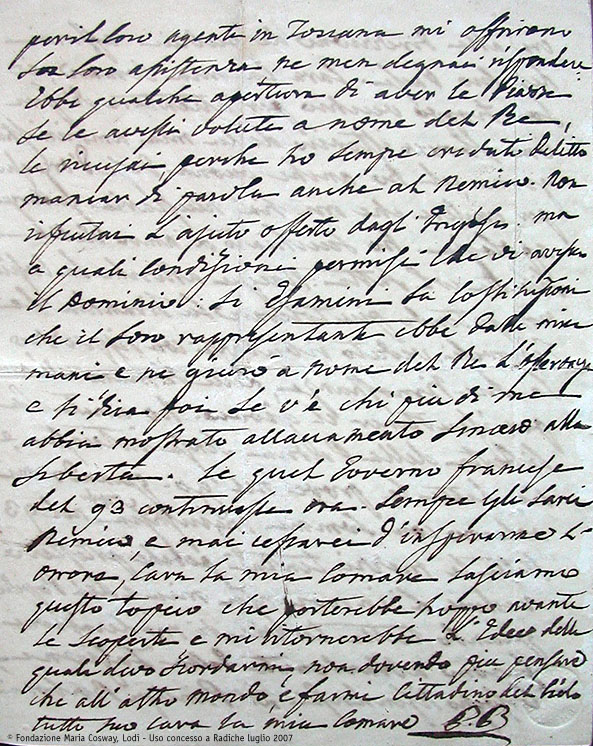 per il loro agente in Toscana mi offrirono
la loro assistenza ne men degnai rispondere
Ebbi qualche apertura di aver le Piazze
se le avessi volute a nome del Re,
le ricusai, perche ho sempre creduto Delitto
mancar di parola anche al Nemico. Non
rifiutai l'ajuto offerto dagl'Inglesi ma
a quali condizioni permisi che vi avesse
il Dominio: Si Esamini la Costituzione
che il loro rappresentante ebbe dalle mie
mani e ne giurò a nome del Re l'osservanza
e si dica poi se v'è chi piu di me
abbia mostrato attaccamento sincero alla
libertà. Se quel Governo francese
del 93 continuasse ora. Sempre gli sarei
Nemico, e mai cesserei d'inspirarne l'
orrore, Cara la mia Comare lasciamo
questo topico che porterebbe troppo avanti
le scoperte e mi ritornerebbe l'Idee delle
quali devo scordarmi non dovendo piu pensare
che all'altro mondo, e farmi Cittadino del Cielo
tutto suo Cara la mia Comare
© Fondazione Maria Cosway, Lodi - Uso concesso a Radiche luglio 2007